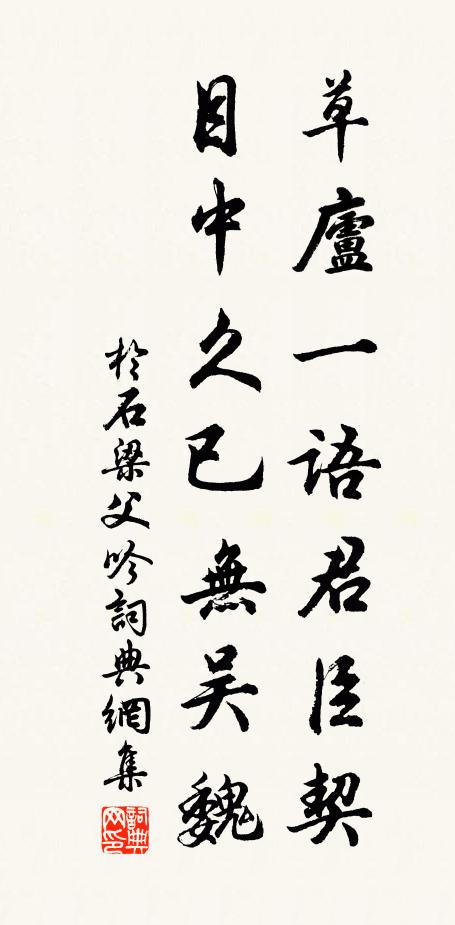 草廬一語君臣契
目中久已無吴魏
於石梁父吟詞典網集
詞典網印